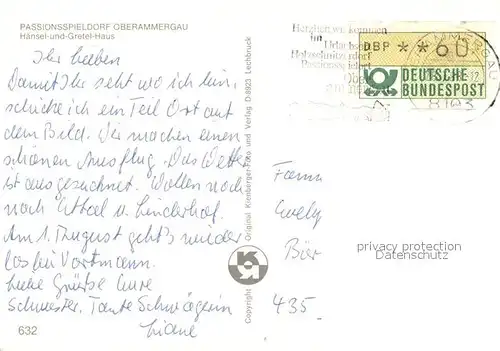 PASSIONSSPIELDORF OBERAMMERGAU
Hänsel-und-Gretel-Haus
Ihr Lieben
Damit Ihr seht wo ich bin,
schicke ich ein Teil Ort auf
dem Bild. Wir machen einen
schönen Ausflug. Das Wetter
ist ausgezeichnet. Wollen noch
nach Ettal u. Linderhof.
Am 1. August geht's wieder
los bei Vortmann.
Liebe Grüße Eure
Schwester, Tante Schwägerin
Liane
632
Copyright Original Kienberger-Foto und Verlag D-8923 Lechbruck
Herzlich willkommen
im
Urlaubs
Holzschnitzerdorf
Passionsspielort
DBP **60
DEUTSCHE
BUNDESPOST
8103
Fam
Evely
Bär
435
privacy protection
Datenschutz